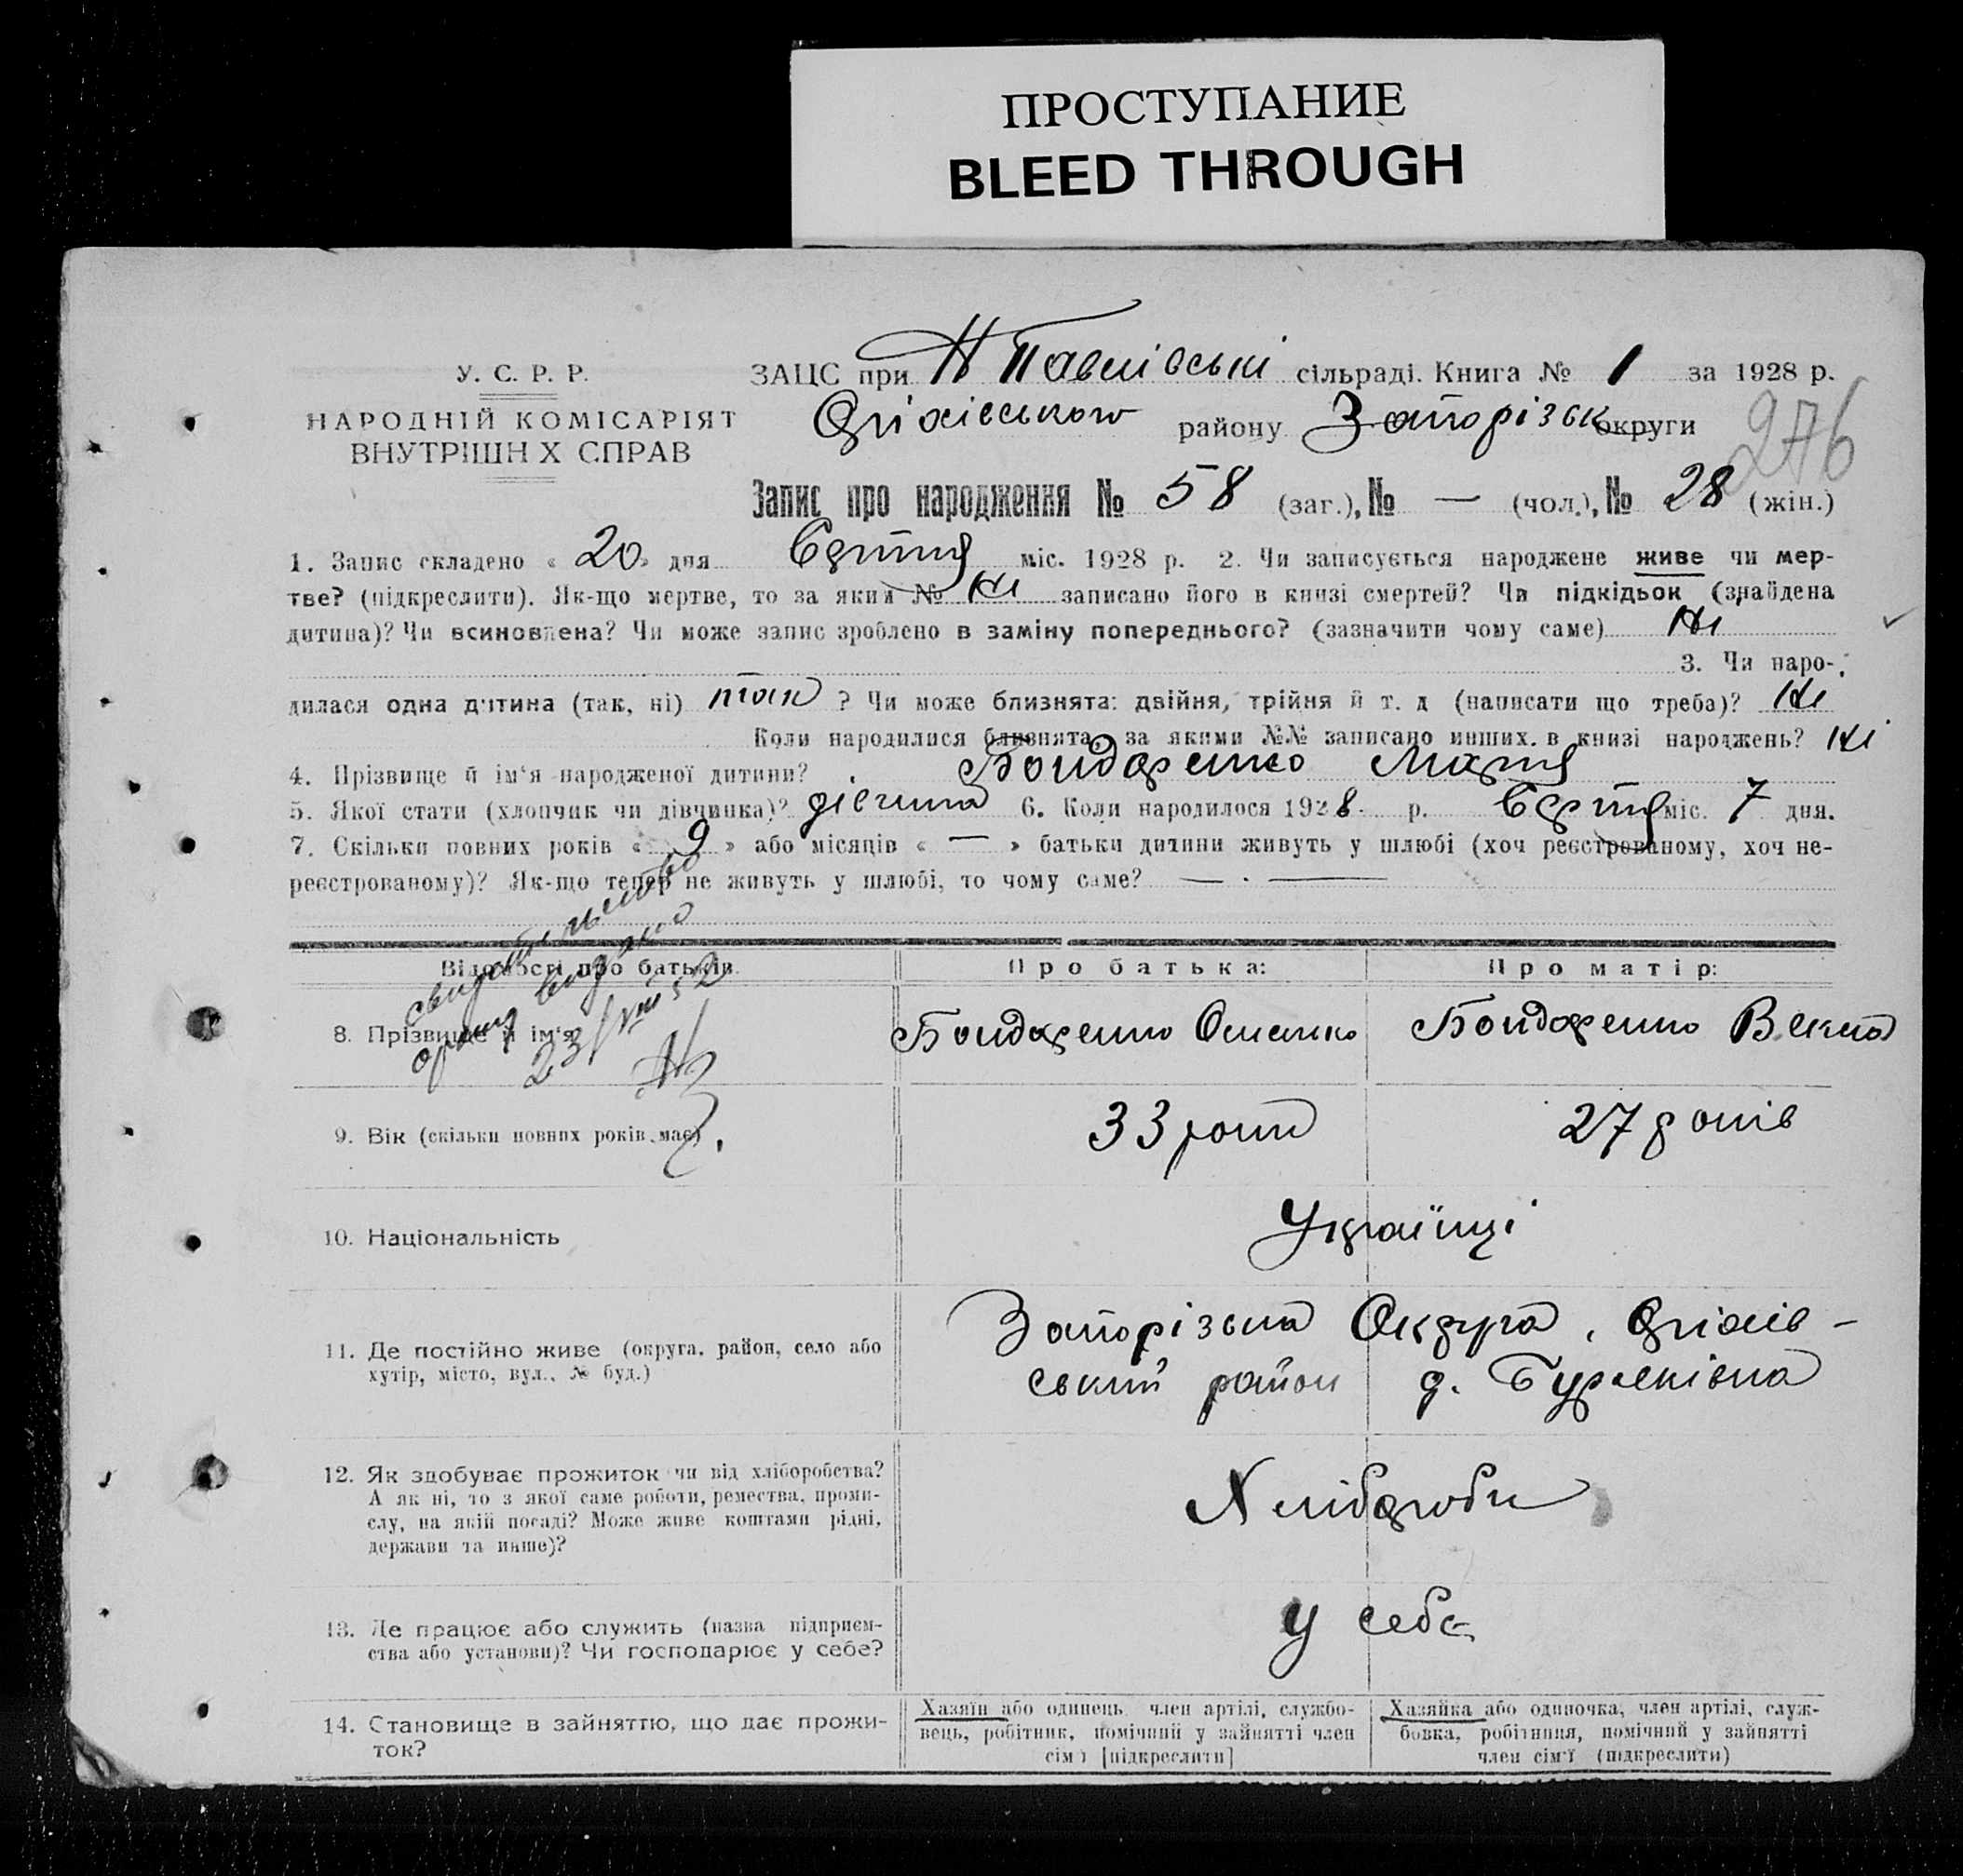 ПРОСТУПАНИЕ
BLEED THROUGH
У. С. Р. Р.
НАРОДНІЙ КОМІСАРІЯТ
ВНУТРІШН Х СПРАВ
ЗАЦС при Н Павлівські сільраді. Книга № 1 за 1928 р.
Оріхівського району Запорізьк округи
276
Запис про народження № 58 (заг.), № — (чол.), № 28 (жін.)
1. Запис складено « 20 » дня Серпня міс. 1928 р. 2. Чи записується народжене живе чи мер-
тве? (підкреслити). Як-що мертве, то за яким № Ні записано його в книзі смертей? Чи підкідьок (знайдена
дитина)? Чи всиновлена? Чи може запис зроблено в заміну попереднього? (зазначити чому саме) Ні
3. Чи наро-
дилася одна дитина (так, ні) так ? Чи може близнята: двійня, трійня й т. д (написати що треба)? Ні
Коли народилися близнята, за якими №№ записано инших. в книзі народжень? Ні
4. Прізвище й ім'я народженої дитини? Бондаренко Марія
5. Якої стати (хлопчик чи дівчинка)? дівчина 6. Коли народилося 1928 р. Серпня міс. 7 дня.
7. Скільки повних років « 9 » або місяців « — » батьки дитини живуть у шлюбі (хоч реєстрованому, хоч не-
реєстрованому)? Як-що тепер не живуть у шлюбі, то чому саме? — . —
Відомості про батьків.
Про батька:
Про матір:
8. Прізвище й ім'я
Бондаренко
Бондаренко
23/VIII 52
9. Вік (скільки повних років має)
33 роки
27 років
10. Національність
Українці
11. Де постійно живе (округа, район, село або
хутір, місто, вул., № буд.)
Запорізька Округа, Оріхів-
ський район
12. Як здобуває прожиток чи від хліборобства?
А як ні, то з якої саме роботи, ремества, проми-
слу, на якій посаді? Може живе коштами рідні,
держави та инше)?
Хлібороби
13. Де працює або служить (назва підприєм-
ства або установи)? Чи господарює у себе?
У себе
14. Становище в зайняттю, що дає прожи-
ток?
Хазяїн або одинець, член артілі, службо-
вець, робітник, помічний у зайнятті член
сім'ї [підкреслити]
Хазяйка або одиночка, член артілі, служ-
бовка, робітниця, помічний у зайнятті
член сім'ї (підкреслити)